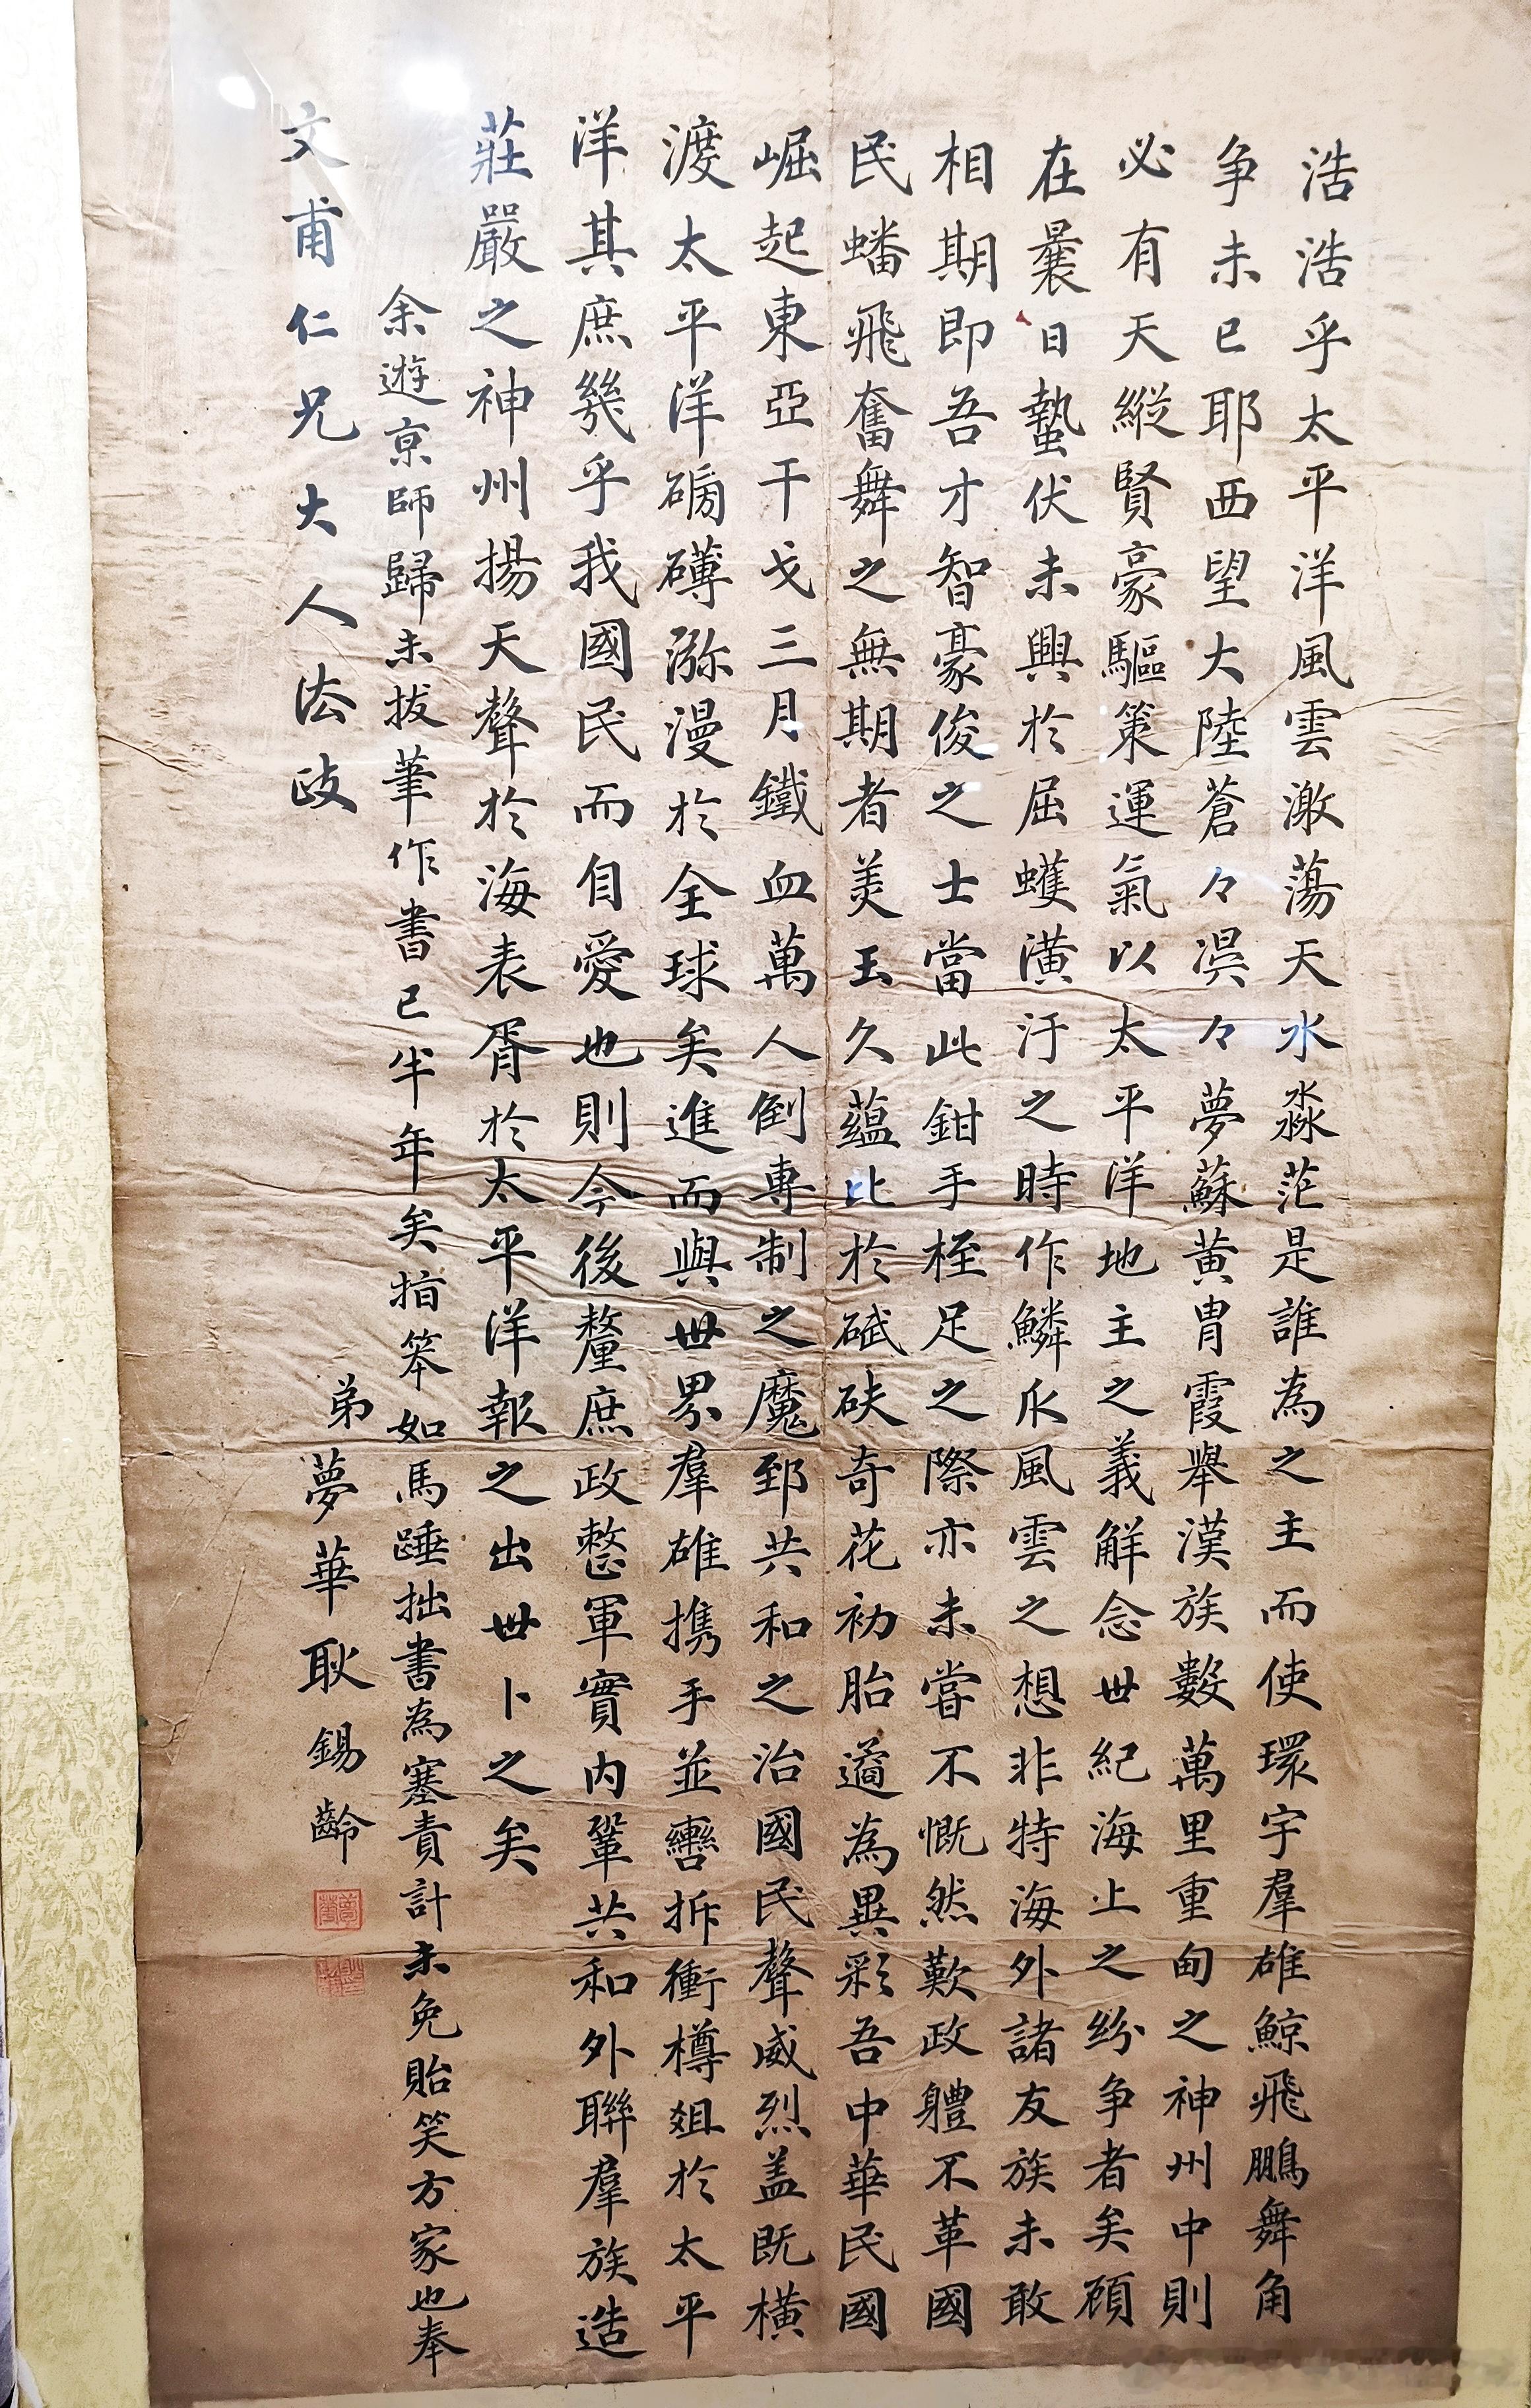 浩浩乎太平洋風雲激蕩天水淼茫是誰為之主而使環宇羣雄鯨飛鵬舞角
争未已耶西望大陸蒼々淏々夢蘇黄胄霞舉漢族數萬里重甸之神州中則
必有天縱賢豪驅策運氣以太平洋地主之義解念世紀海上之紛争者矣碩
在曩日蟄伏未興於屈蠖潢汙之時作鱗爪風雲之想非特海外諸友族未敢
相期即吾才智豪俊之士當此鉗手桎足之際亦未嘗不慨然歎政體不革國
民蟠飛奮舞之無期者美玉久蘊比於碔砆奇花初胎遹為異彩吾中華民國
崛起東亞干戈三月鐵血萬人倒専制之魔郅共和之治國民聲威烈盖既横
渡太平洋磅礴瀰漫於全球矣進而與世界羣雄携手並轡折衝樽俎於太平
洋其庶幾乎我國民而自愛也則今後釐庶政整軍實内鞏共和外聯羣族造
莊嚴之神州揚天聲於海表胥於太平洋報之出世卜之矣
余遊京師歸未拔筆作書已半年矣指笨如馬踵拙書為塞責計未免貽笑方家也奉
文甫仁兄大人法政
弟夢華耿錫齡